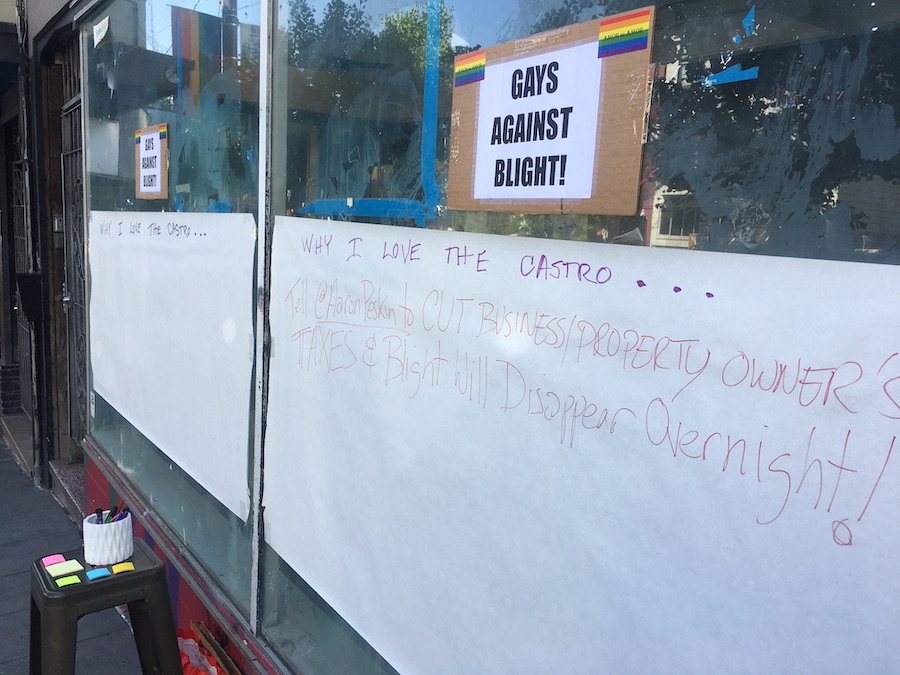 GAYS
AGAINST
BLIGHT!
WHY I LOVE THE CASTRO...
GAYS
AGAINST
BLIGHT!
WHY I LOVE THE CASTRO...
Tell @AaronPeskin to CUT BUSINESS/PROPERTY OWNER'S
TAXES & Blight Will Disappear Overnight!